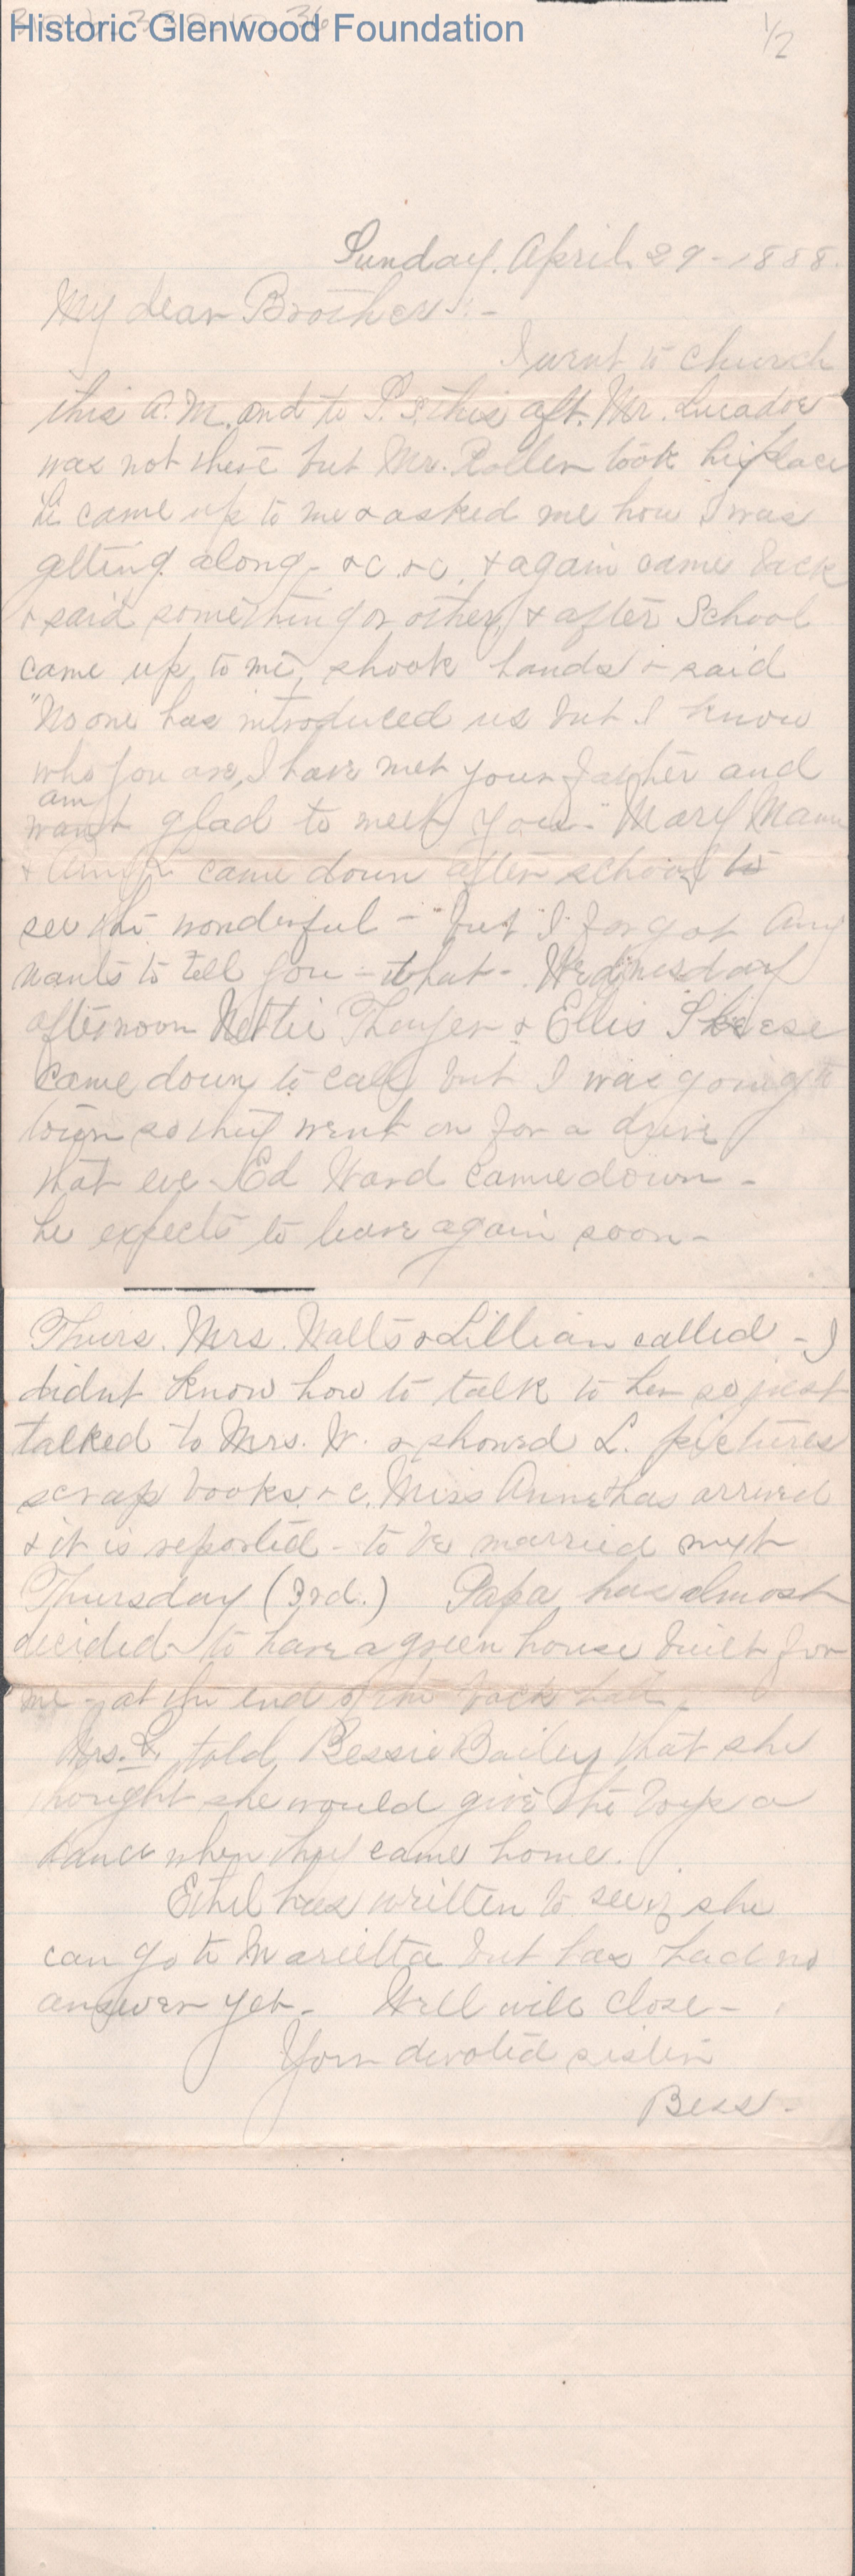 Historic Glenwood Foundation
1/2
Sunday. April 29 - 1888.
My dear Brother :-
I went to church
this A.M. and to S.S. this aft. Mr. Lucadoe
was not there but Mr. Roller took his place
he came up to me & asked me how I was
getting along, &c. &c. & again came back
& said something or other, & after School
came up to me, shook hands & said
"No one has introduced us but I know
who you are, I have met your father and
am
want glad to meet you." Mary Mann
& came down after school to
see the wonderful - "but" I forgot Amy
wants to tell you - that - Wednesday
afternoon Nettie Thayer & Ellis Skeese
came down to call but I was going to
town so they went on for a drive
that eve Ed Ward came down -
he expects to leave again soon -
Thurs. Mrs. Watts & Lillian called - I
didnt know how to talk to her so just
talked to Mrs. W. & showed L. pictures
scrap books &c. Miss Anne has arrived
& it is reported - to be married next
Thursday (3rd.) Papa has almost
decided to have a green house built for
me - at the end of the back hall.
Mrs. L. told Bessie Bailey that she
thought she would give the boys a
dance when they came home.
Ethel has written to see if she
can go to Marietta but has had no
answer yet. Well will close -
Your devoted sister
Bess.